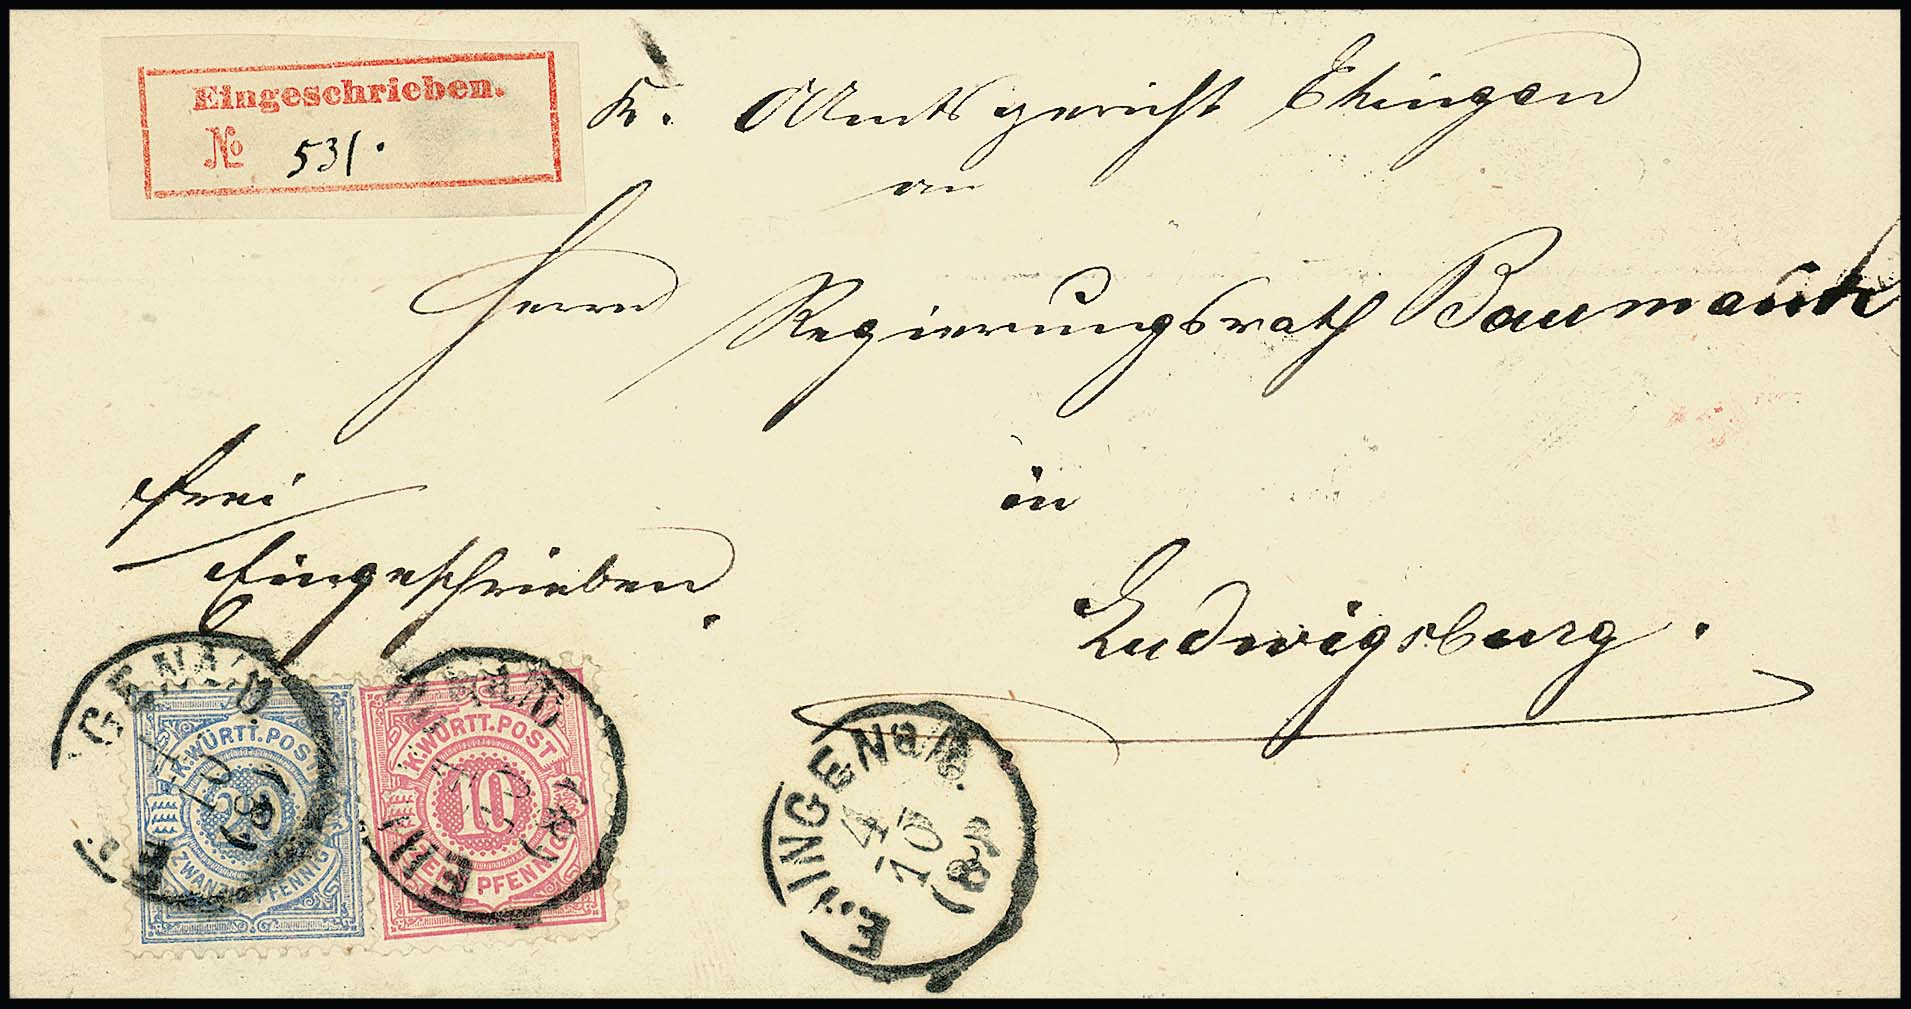 Eingeschrieben.
№ 531.
K. Amtsgericht Ehingen
an
Herrn Regierungsrath
in
Ludwigsburg.
frei
Eingeschrieben.
K. WÜRTT. POST
20
ZWANZIG PFENNIG
K. WÜRTT. POST
10
ZEHN PFENNIG
EHINGEN a/D.
4
10